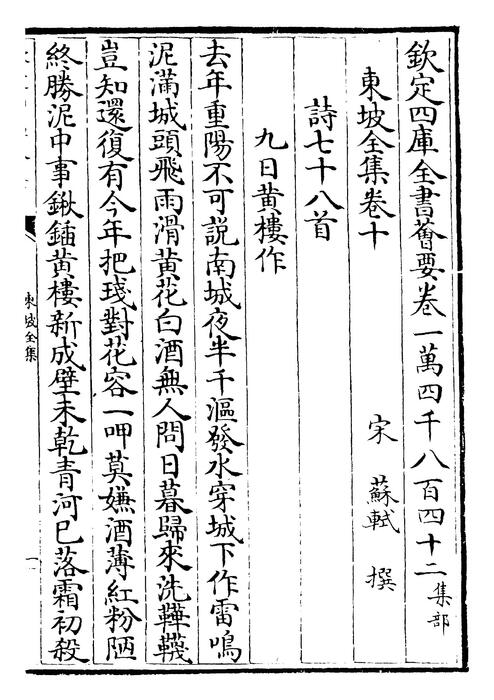 欽定四庫全書薈要卷一萬四千八百四十二集部
東坡全集卷十　宋　蘇軾　撰
詩七十八首
九日黄樓作
去年重陽不可説南城夜半千漚發水穿城下作雷鳴
泥滿城頭飛雨滑黄花白酒無人問日暮歸來洗鞾韈
豈知還復有今年把琖對花容一呷莫嫌酒薄紅粉陋
終勝泥中事鍬鍤黄樓新成壁未乾青河已落霜初殺
東坡全集
一